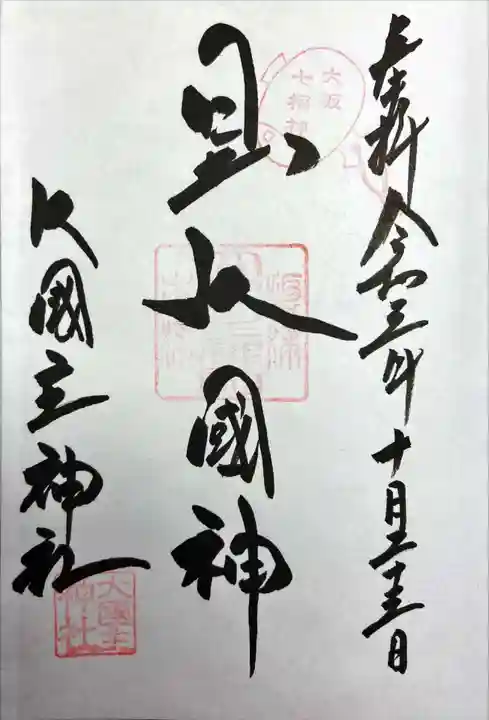 奉拝 令和三年十月二十五日
大阪
七福神
日出大國神
大國主神社
大國主
神社